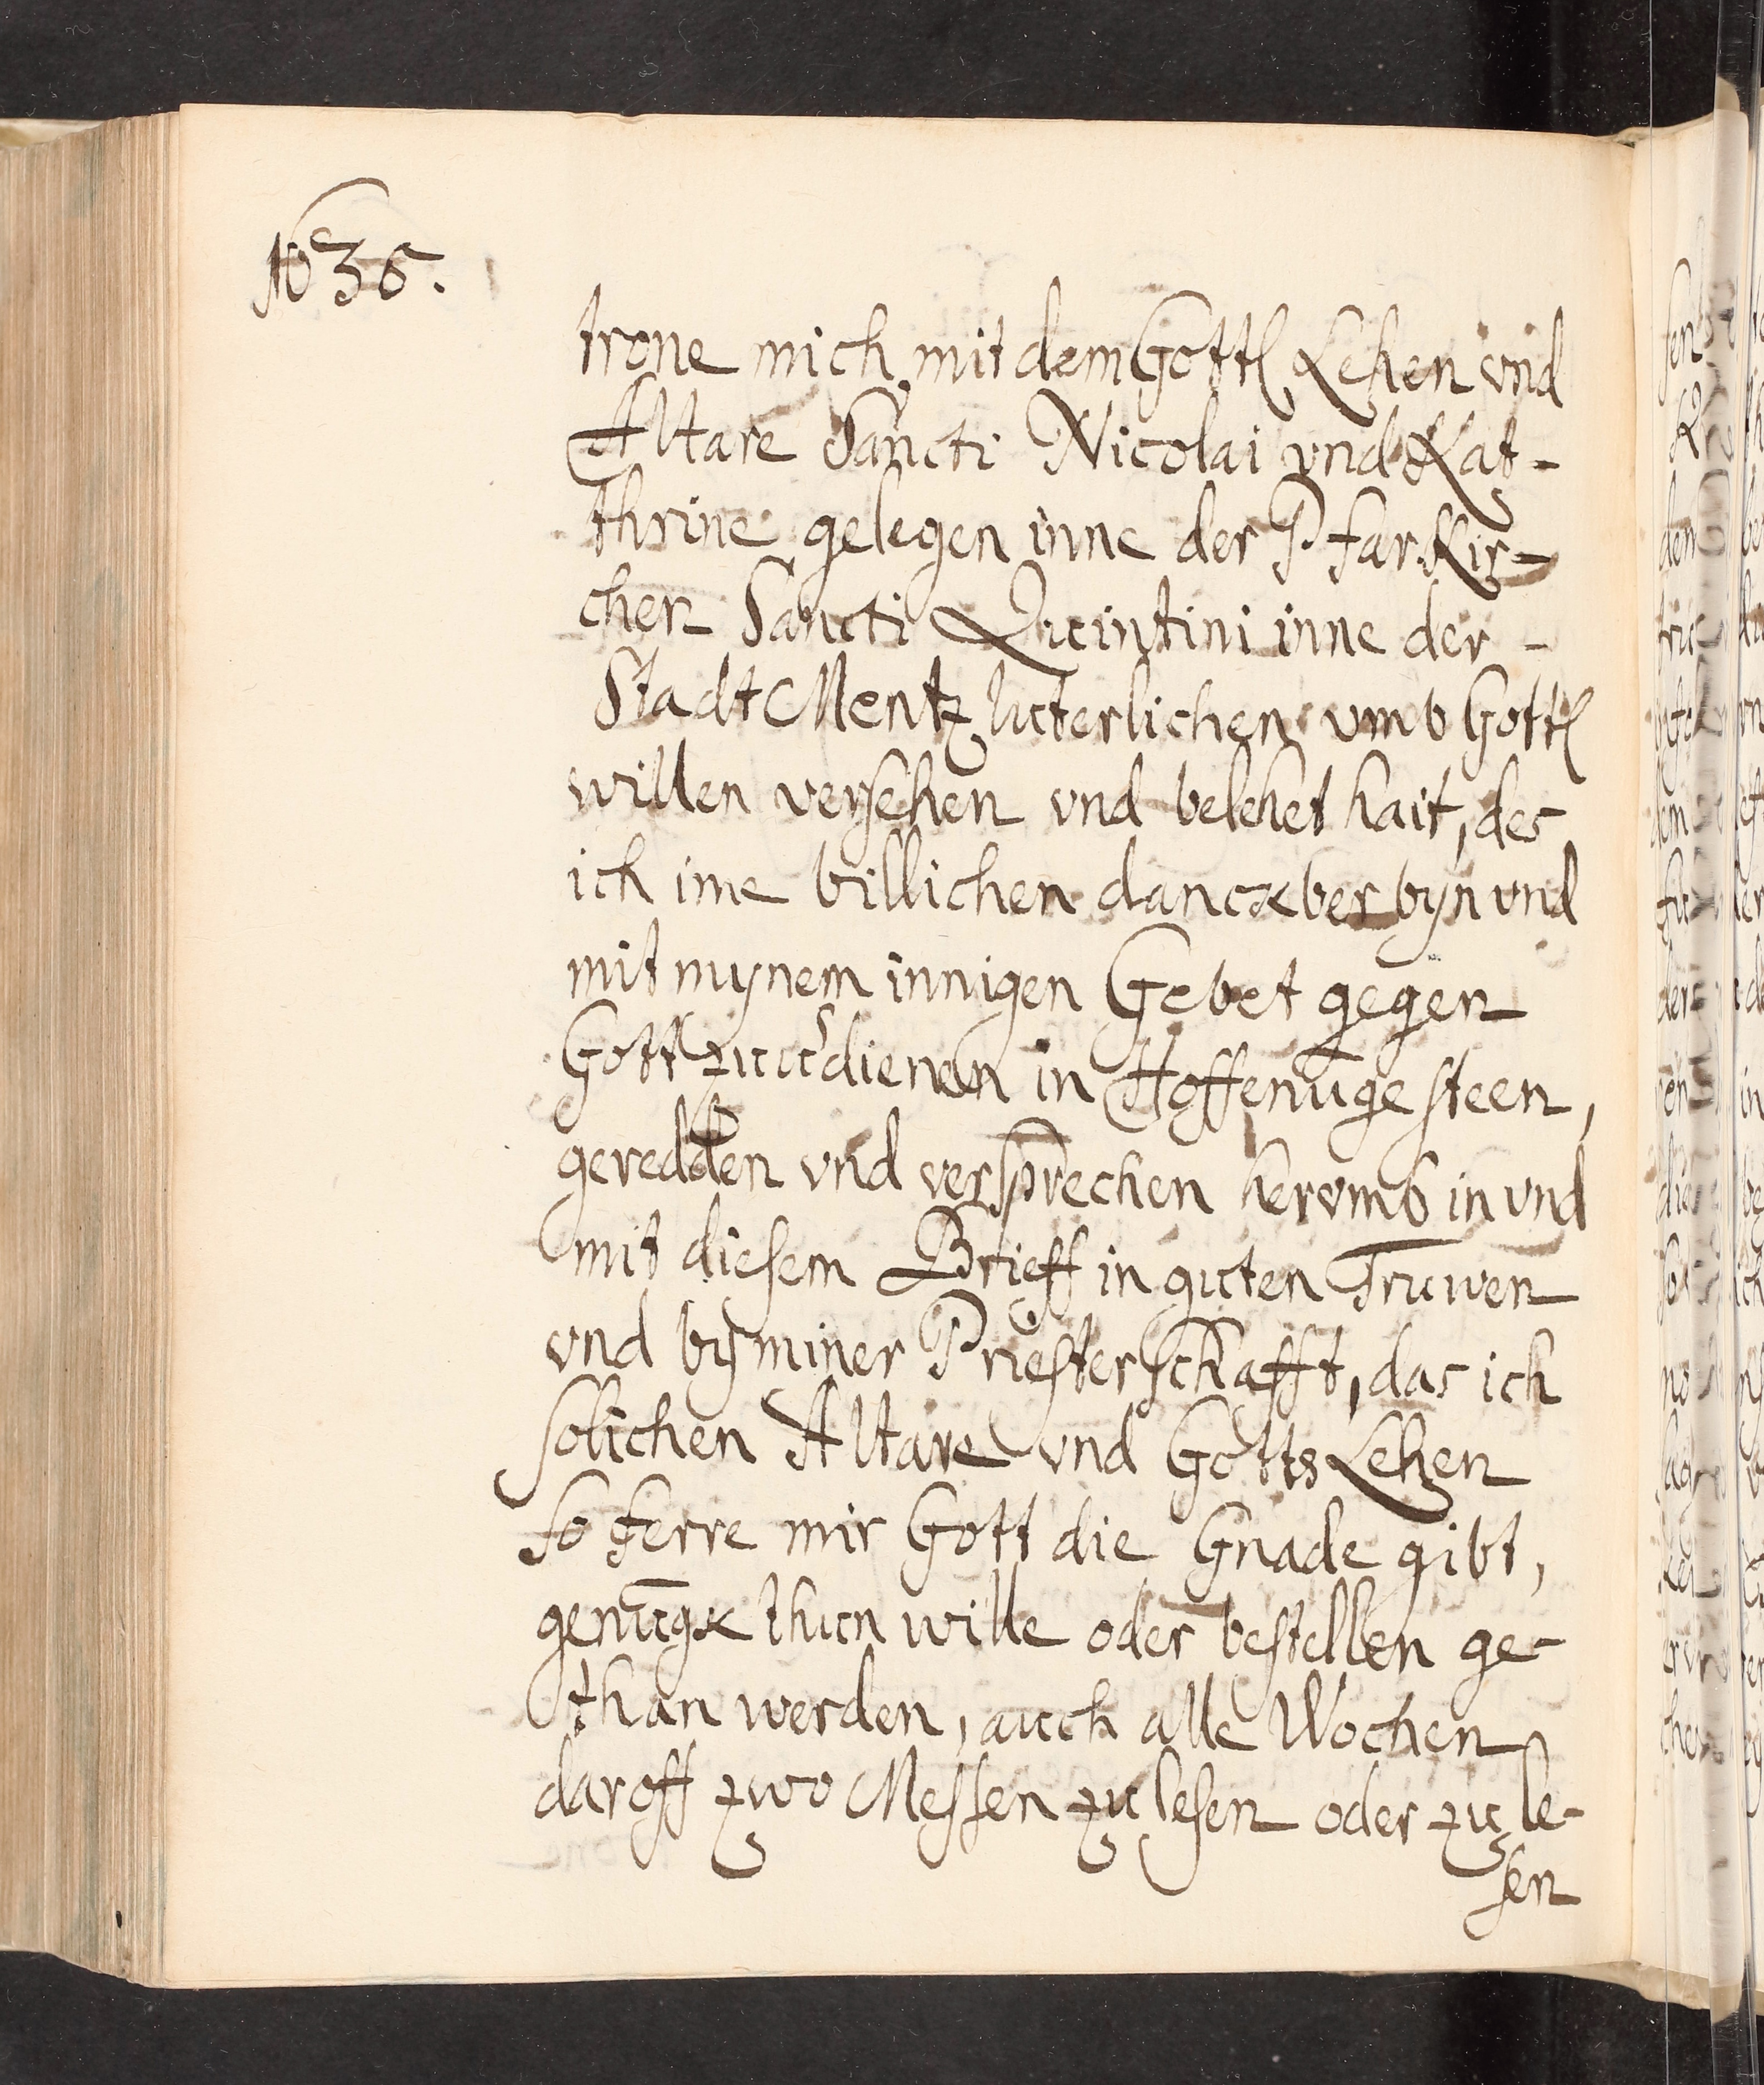 1636.
trone mich mit dem Gotts Lehen vnd
Altare Sancti Nicolai vnd Kat-
thrine gelegen inne der PfarKir-
chen Sancti Quintini inne der -
Stadt Mentz luterlichen vmb Gotts
willen versehen vnd belehet hait, des
ich ime billichen danckber byn vnd
mit mynem innigen Gebet gegen
Gott zuudienen in Hoffenunge steen,
geredden vnd versprechen hervmb in vnd
mit diesem Brieff in guten Truwen
vnd by miner Priesterschafft, das ich
solichen Altare vnd Gotts Lehen
so ferre mir Gott die Gnade gibt,
genugk thun wille oder bestellen ge-
than werden, auch alle Wochen
daroff zwo Messen zu lesen oder zu le-
sen